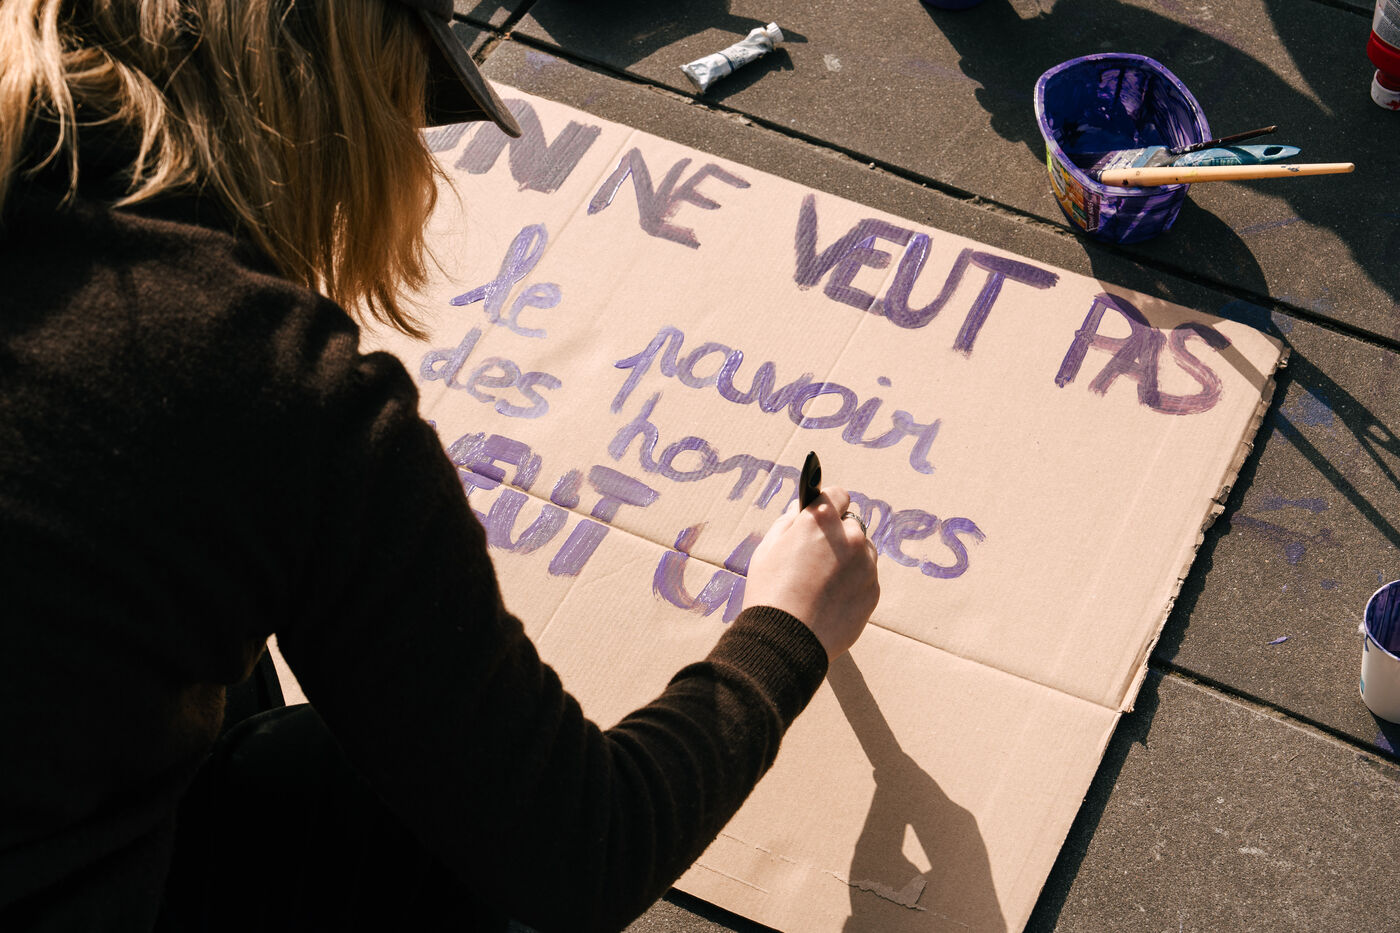 ON NE VEUT PAS
le pouvoir
des hommes
VEUT